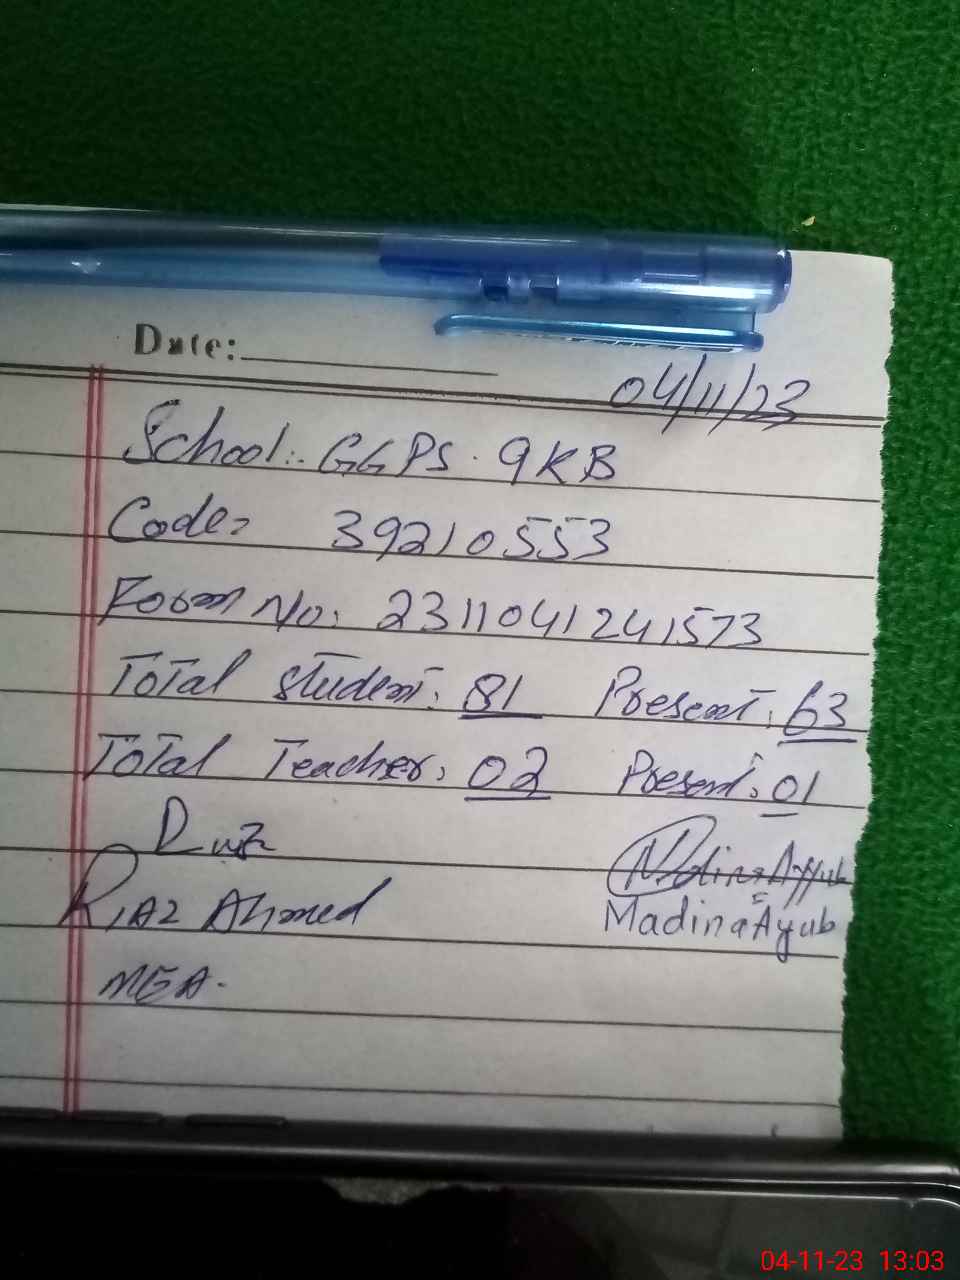 Date:
04/11/23
School:. GGPS. 9KB
Code: 39210553
Form No: 2311041241573
Total student: 81 Present: 63
Total Teacher: 02 Present: 01
Madina Ayyub
Riaz Ahmed Madina Ayub
MEA.
04-11-23 13:03